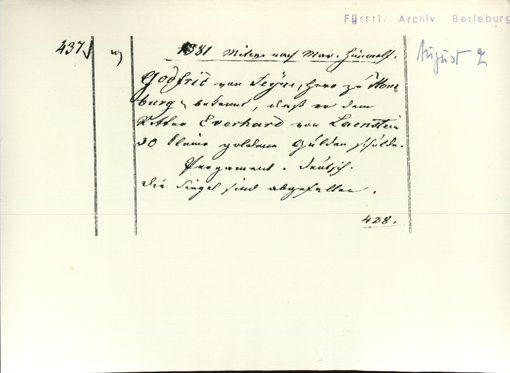 Fürstl. Archiv Berleburg
437
1381 Mitw. nach Mar. Himmelf.
August 2
Godfrit von Seyn, Herr zu Hom-
burg bekennt, daß er dem
Ritter Everhard von Laenstein
30 kleine goldene Gulden schulde.
Pergament. Deutsch.
Die Siegel sind abgefallen.
428.